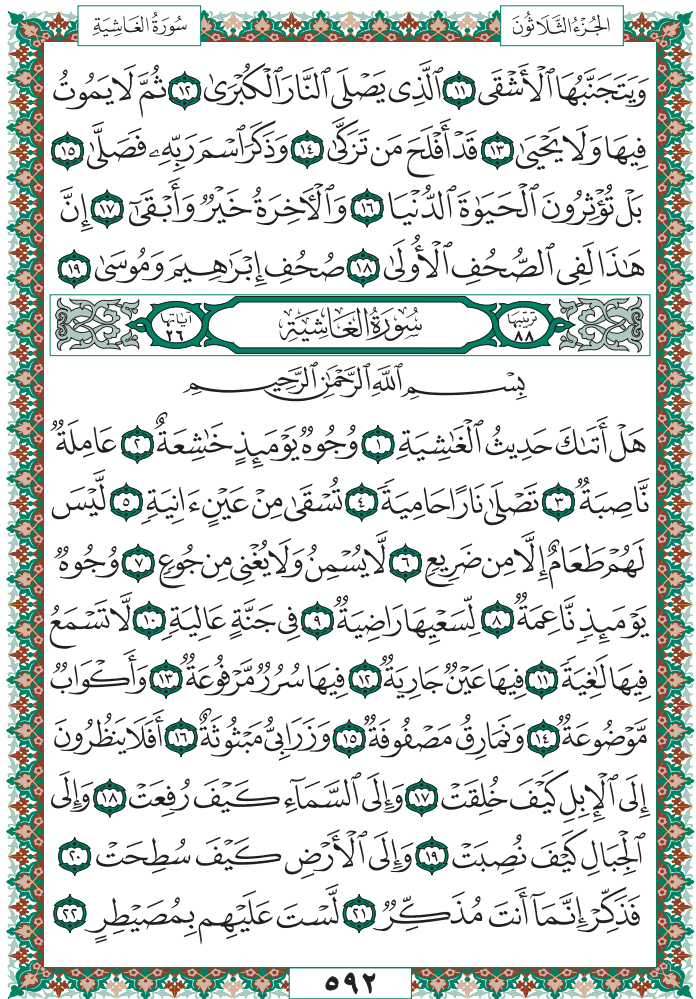 الجُزْءُ الثَّلَاثُونَ
سُورَةُ الغَاشِيَةِ
وَيَتَجَنَّبُهَا ٱلْأَشْقَى ١١ ٱلَّذِى يَصْلَى ٱلنَّارَ ٱلْكُبْرَىٰ ١٢ ثُمَّ لَا يَمُوتُ
فِيهَا وَلَا يَحْيَىٰ ١٣ قَدْ أَفْلَحَ مَن تَزَكَّىٰ ١٤ وَذَكَرَ ٱسْمَ رَبِّهِۦ فَصَلَّىٰ ١٥
بَلْ تُؤْثِرُونَ ٱلْحَيَوٰةَ ٱلدُّنْيَا ١٦ وَٱلْـَٔاخِرَةُ خَيْرٌ وَأَبْقَىٰٓ ١٧ إِنَّ
هَـٰذَا لَفِى ٱلصُّحُفِ ٱلْأُولَىٰ ١٨ صُحُفِ إِبْرَٰهِيمَ وَمُوسَىٰ ١٩
ترتيبها ٨٨ سُورَةُ الغَاشِيَةِ آياتها ٢٦
بِسْمِ ٱللَّهِ ٱلرَّحْمَـٰنِ ٱلرَّحِيمِ
هَلْ أَتَىٰكَ حَدِيثُ ٱلْغَـٰشِيَةِ ١ وُجُوهٌ يَوْمَئِذٍ خَـٰشِعَةٌ ٢ عَامِلَةٌ
نَّاصِبَةٌ ٣ تَصْلَىٰ نَارًا حَامِيَةً ٤ تُسْقَىٰ مِنْ عَيْنٍ ءَانِيَةٍ ٥ لَّيْسَ
لَهُمْ طَعَامٌ إِلَّا مِن ضَرِيعٍ ٦ لَّا يُسْمِنُ وَلَا يُغْنِى مِن جُوعٍ ٧ وُجُوهٌ
يَوْمَئِذٍ نَّاعِمَةٌ ٨ لِّسَعْيِهَا رَاضِيَةٌ ٩ فِى جَنَّةٍ عَالِيَةٍ ١٠ لَّا تَسْمَعُ
فِيهَا لَـٰغِيَةً ١١ فِيهَا عَيْنٌ جَارِيَةٌ ١٢ فِيهَا سُرُرٌ مَّرْفُوعَةٌ ١٣ وَأَكْوَابٌ
مَّوْضُوعَةٌ ١٤ وَنَمَارِقُ مَصْفُوفَةٌ ١٥ وَزَرَابِىُّ مَبْثُوثَةٌ ١٦ أَفَلَا يَنظُرُونَ
إِلَى ٱلْإِبِلِ كَيْفَ خُلِقَتْ ١٧ وَإِلَى ٱلسَّمَآءِ كَيْفَ رُفِعَتْ ١٨ وَإِلَى
ٱلْجِبَالِ كَيْفَ نُصِبَتْ ١٩ وَإِلَى ٱلْأَرْضِ كَيْفَ سُطِحَتْ ٢٠
فَذَكِّرْ إِنَّمَآ أَنتَ مُذَكِّرٌ ٢١ لَّسْتَ عَلَيْهِم بِمُصَيْطِرٍ ٢٢
٥٩٢